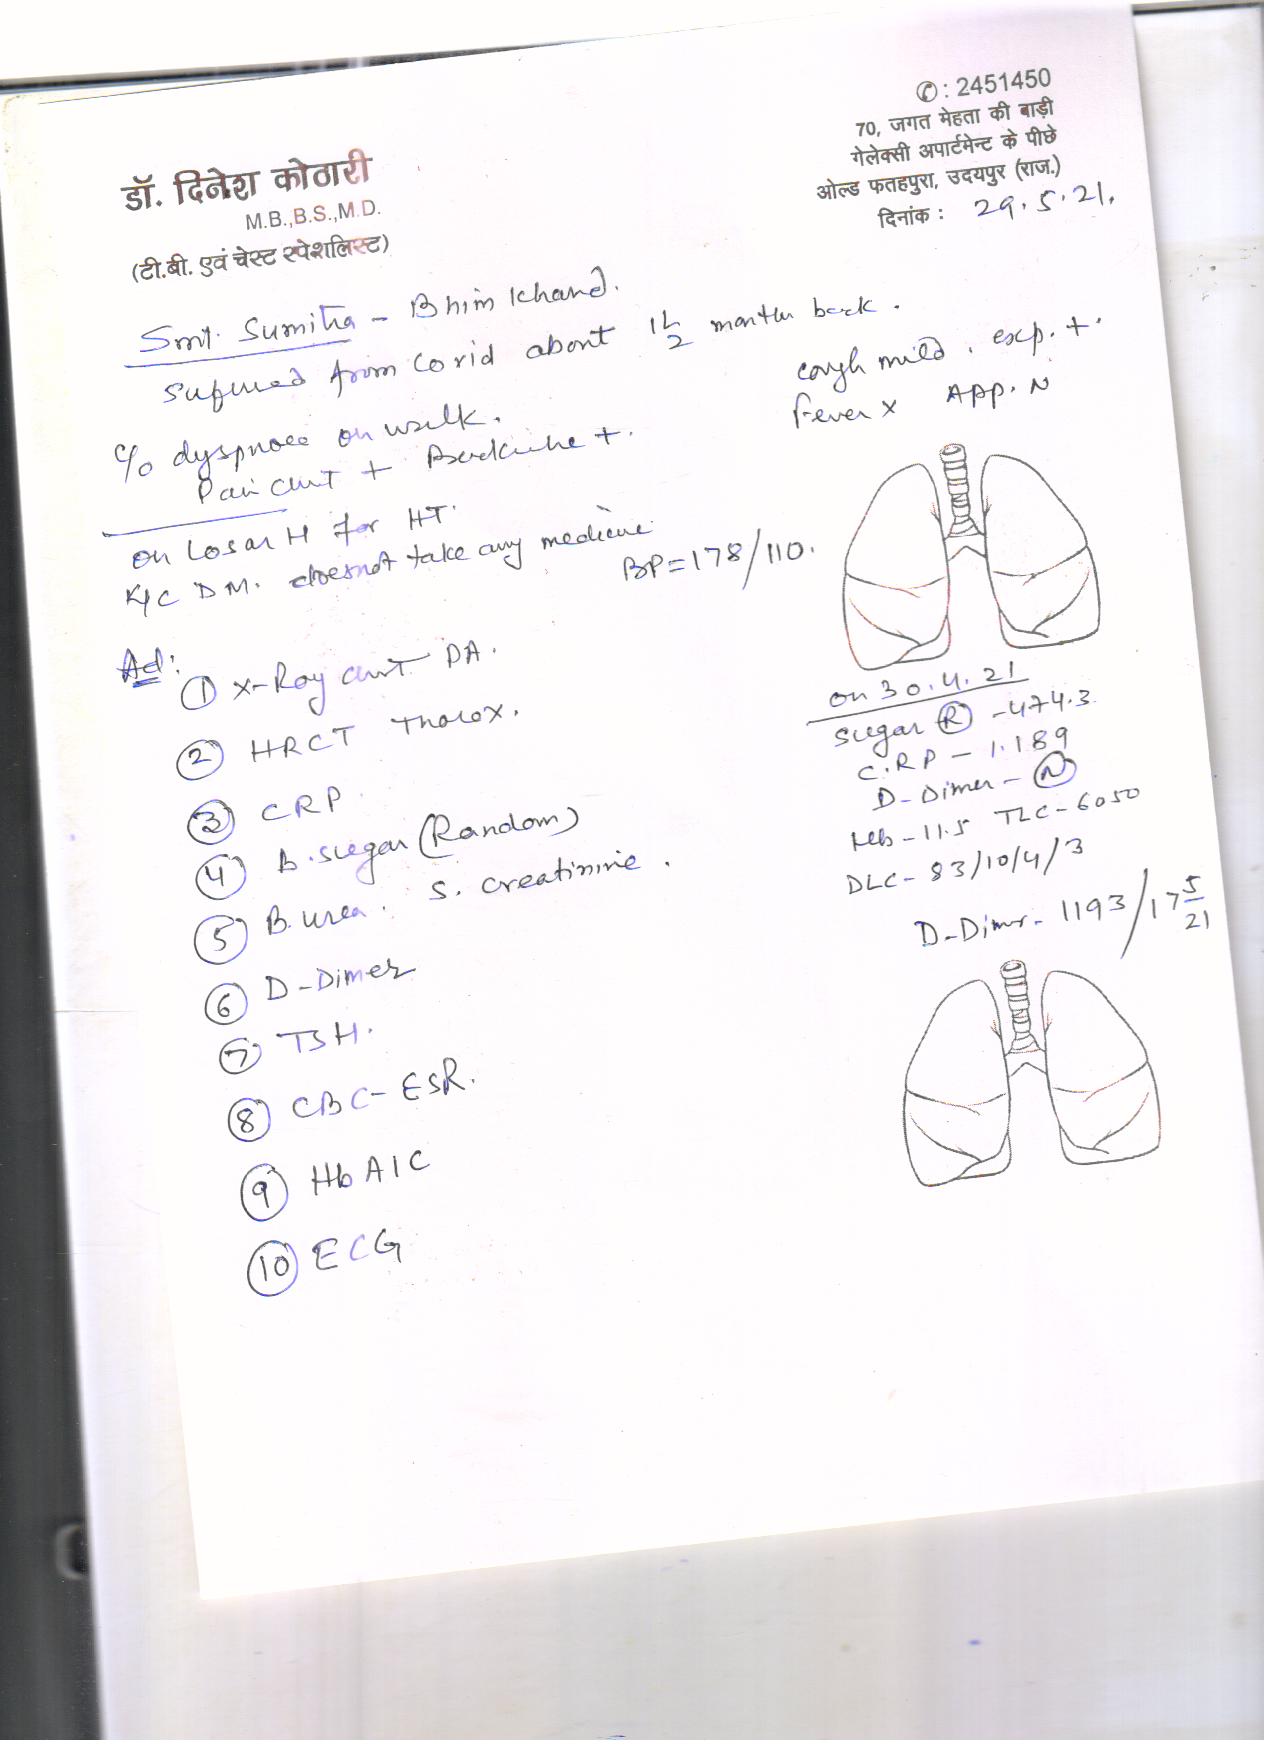 ✆: 2451450
70, जगत मेहता की बाड़ी
गेलेक्सी अपार्टमेन्ट के पीछे
ओल्ड फतहपुरा, उदयपुर (राज.)
दिनांक : 29.5.21.
डॉ. दिनेश कोठारी
M.B.,B.S.,M.D.
(टी.बी. एवं चेस्ट स्पेशलिस्ट)
Smt. Sumitra - Bhim Khand.
from Covid about 1 1/2 month back.
cough mild. exp. +.
Fever x App. N
c/o dyspnoea on walk.
Pain chest + Backache +.
on Losar H for HT.
K/C DM. doesnot take any medicine
BP=178/110.
Ad:
① X-Ray chest PA.
② HRCT Thorox.
③ CRP.
④ B.sugar (Random)
⑤ B.urea. S. creatinine.
⑥ D-Dimer
⑦ TSH.
⑧ CBC-ESR.
⑨ HbA1C
⑩ ECG
on 30.4.21
Sugar Ⓡ -474.3.
C.RP - 1.189
D-Dimer - Ⓝ
Hb-11.5 TLC-6050
DLC- 83/10/4/3
D-Dimer- 1193/17 5/21